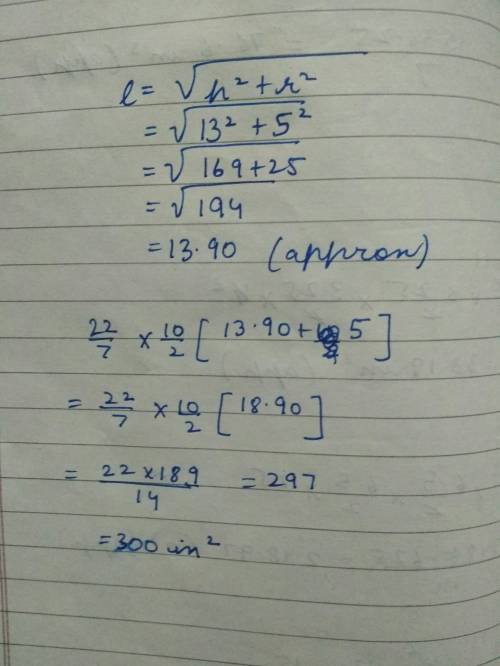 l = √h² + r²
= √13² + 5²
= √169+25
= √194
= 13.90 (approx)
22/7 × 10/2 [13.90+ 5]
= 22/7 × 10/2 [18.90]
= 22×189/14 = 297
= 300 in²